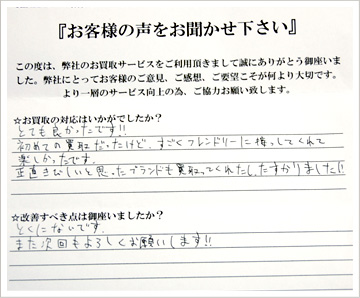 『お客様の声をお聞かせ下さい』
この度は、弊社のお買取サービスをご利用頂きまして誠にありがとう御座いま
した。弊社にとってお客様のご意見、ご感想、ご要望こそが何より大切です。
より一層のサービス向上の為、ご協力お願い致します。
☆お買取の対応はいかがでしたか?
とても良かったです!!
初めての買取だったけど、すごくフレンドリーに接してくれて
楽しかったです。
正直きびしいと思ったブランドも買取ってくれたし、たすかりました!!
☆改善すべき点は御座いましたか?
とくにないです。
また次回もよろしくお願いします!!